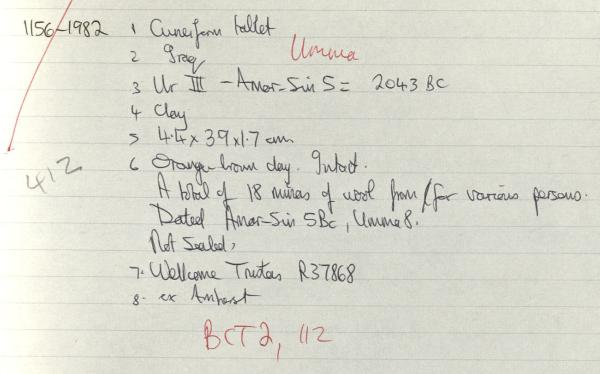 1156-1982 1 Cuneiform tablet
2 Iraq Umma
3 Ur III - Amar-Sin 5 = 2043 BC
4 Clay
5 4.4 x 3.9 x 1.7 cm.
6 Orange-brown clay. Intact.
412
A total of 18 minas of wool from/for various persons.
Dated Amar-Sin 5Bc, Umma 8.
Not Sealed,
7. Wellcome Trustees R37868
8. ex Amherst
BCT2, 112